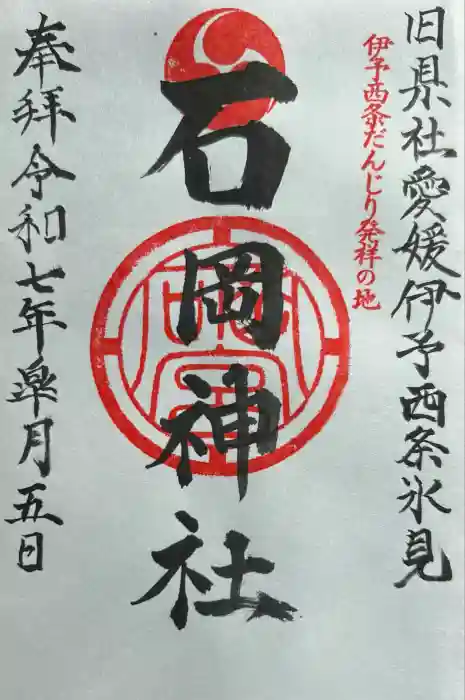 旧県社愛媛伊予西条氷見
伊予西条だんじり発祥の地
石岡神社
奉拝令和七年皐月五日